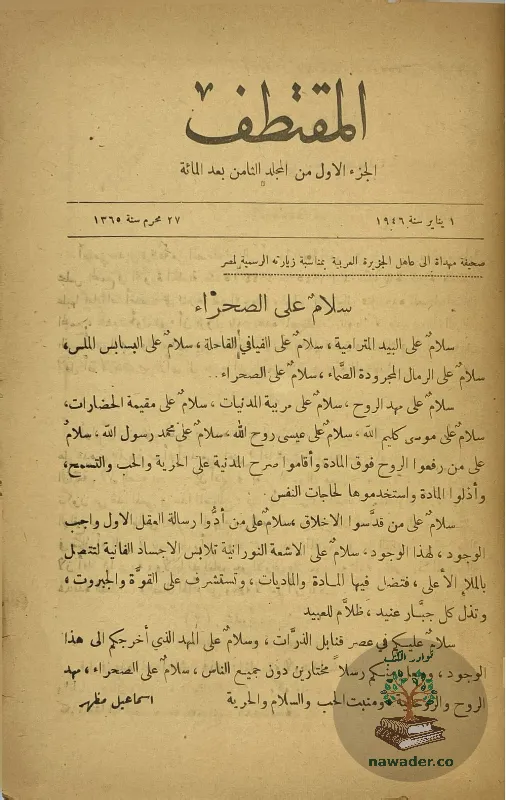 المقتطف
٧
الجزء الاول من المجلد الثامن بعد المائة
١ يناير سنة ١٩٤٦
٢٧ محرم سنة ١٣٦٥
صحيفة مهداة الى عاهل الجزيرة العربية بمناسبة زيارته الرسمية لمصر
سلامٌ على الصحراء
سلامٌ على البيد المترامية، سلامٌ على الفيافي القاحلة، سلامٌ على البسابس الملس،
سلامٌ على الرمال المجرودة الصَّماء، سلامٌ على الصحراء..
سلامٌ على مهد الروح، سلامٌ على مربية المدنيات، سلامٌ على مقيمة الحضارات،
سلامٌ على موسى كليم الله، سلامٌ على عيسى روح الله، سلامٌ على محمد رسول الله، سلامٌ
على من رفعوا الروح فوق المادة وأقاموا صرح المدنية على الحرية والحب والتسمح،
وأذلوا المادة واستخدموها لحاجات النفس.
سلامٌ على من قدَّسوا الاخلاق، سلامٌ على من أدُّوا رسالة العقل الاول واجب
الوجود، لهذا الوجود، سلامٌ على الاشعة النورانية تلابس الاجساد الفانية لتتصل
بالملإ الأعلى، فتضل فيها المادة والماديات، وتستشرف على القوَّة والجبروت،
وتذل كل جبَّار عنيد، ظلاَّم للعبيد
سلامٌ عليكم في عصر قنابل الذرَّات، وسلامٌ على المهد الذي أخرجكم الى هذا
الوجود، منكم رسلاً مختارين دون جميع الناس، سلامٌ على الصحراء، مهد
الروح ومنبت الحب والسلام والحرية
اسماعيل مظهر
نوادر الكتب
nawader.co